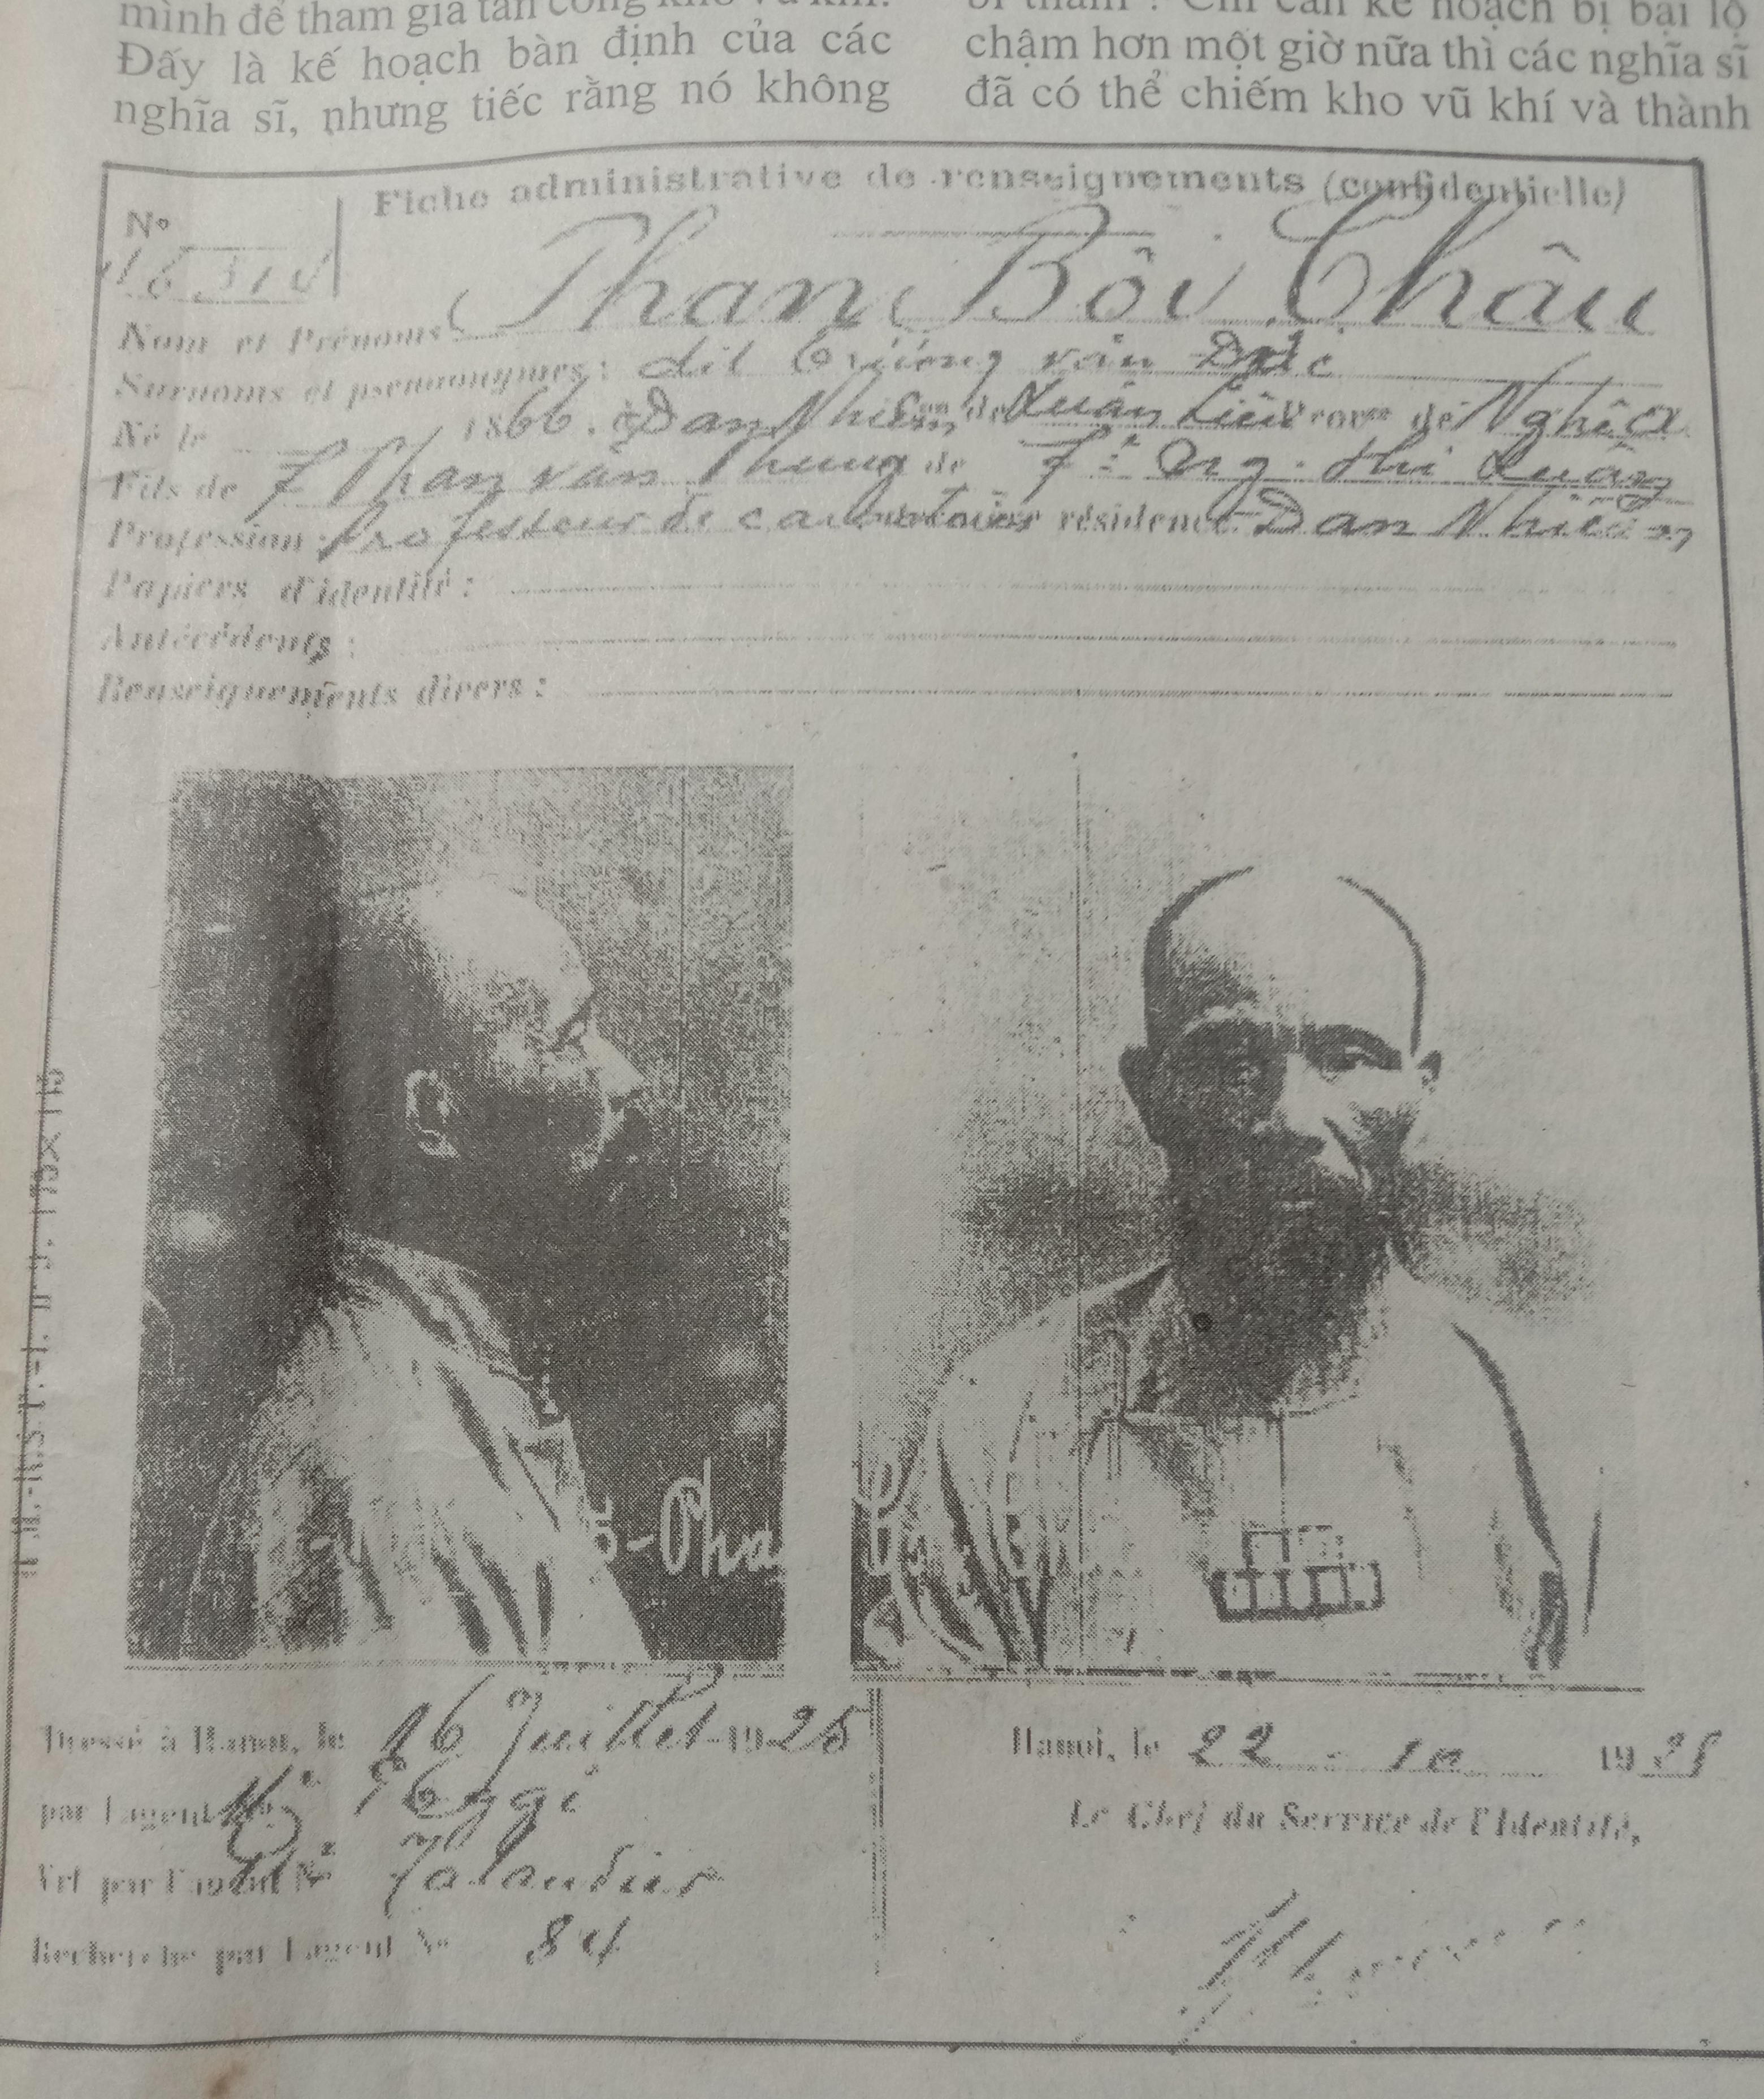 mình để tham gia tấn công kho vũ khí.
Đấy là kế hoạch bàn định của các
nghĩa sĩ, nhưng tiếc rằng nó không
kế hoạch bị bại lộ
chậm hơn một giờ nữa thì các nghĩa sĩ
đã có thể chiếm kho vũ khí và thành
Fiche administrative de renseignements (confidentielle)
No
Phan Bôi Châu
Nom et Prénoms
Surnoms et pseudonymes : dit văn
Né le 1866. à Dan Nhiêm de Xuân Liêu de Nghêa
Fils de Phan văn de thi
Profession : Professeur de caractères résidence Dan Nhiêm
Papiers d'identité :
Antécédents :
Renseignements divers :
-Cha
Dressé à Hanoi, le 16 Juillet 1925
par l'agent
Vu par l'agent No
Recherche par l'agent No 84
Hanoi, le 22 - 10 19
Le Chef du Service de l'Identité,